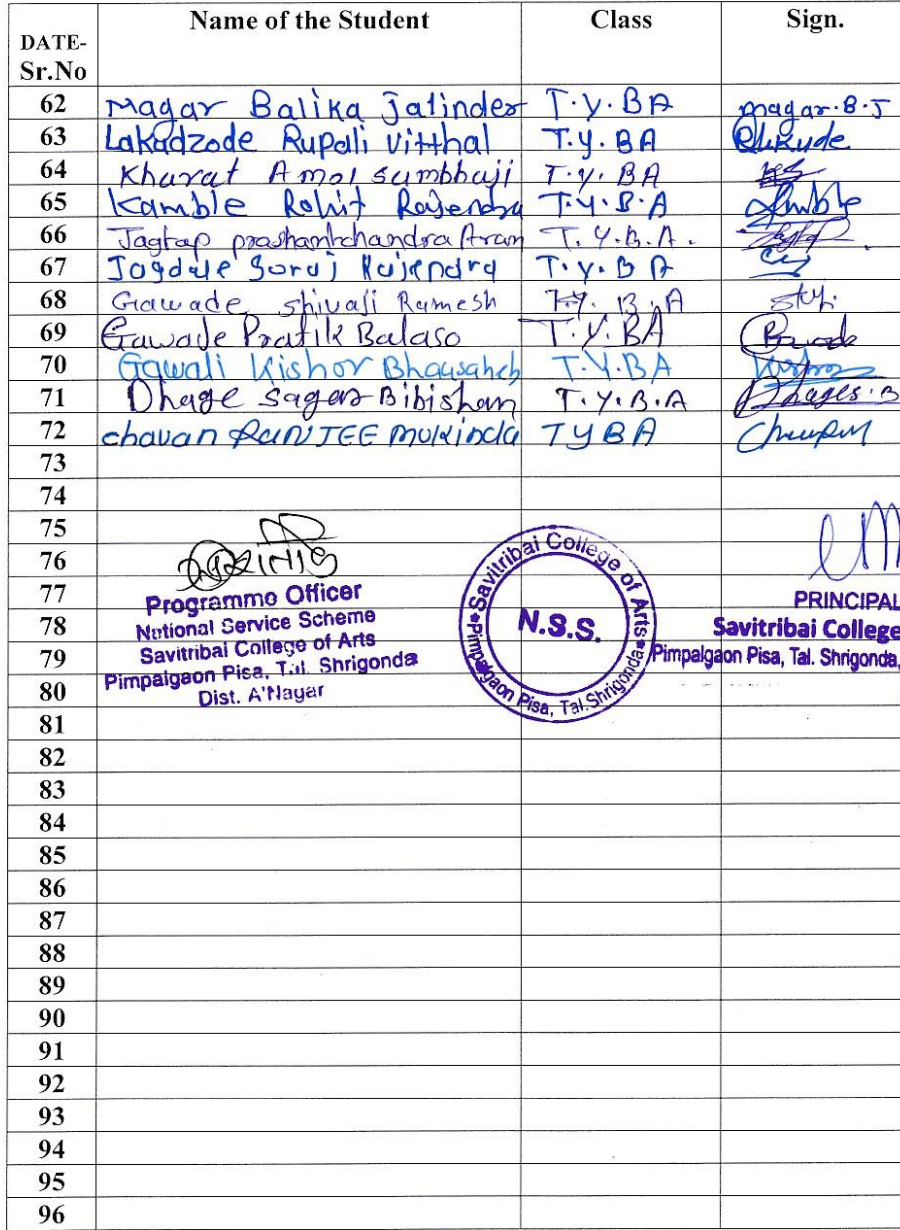 DATE- Sr.No Name of the Student Class Sign.
62 Magar Balika Jalinder T.Y.BA Magar.B.J
63 Lakudzode Rupali Vitthal T.Y.BA
64 Kharat Amol sambhaji T.Y.BA
65 Kamble Rohit Rajendra T.Y.B.A
66 Jagtap prashantchandra Aran T.Y.B.A.
67 Jagdale Suraj Rajendra T.Y.BA
68 Gawade shivali Ramesh T.Y.B.A
69 Gawade Pratik Balaso T.Y.BA
70 Gawali Kishor Bhausaheb T.Y.BA
71 Dhage sagar Bibishan T.Y.B.A Dhages.B
72 chavan RANJEE Mukinda TYBA
73
74
75
76
77
78
79
80
81
82
83
84
85
86
87
88
89
90
91
92
93
94
95
96
Programme Officer
National Service Scheme
Savitribai College of Arts
Pimpalgaon Pisa, Tal. Shrigonda
Dist. A'Nagar
Savitribai College of Arts
Pimpalgaon Pisa, Tal.Shrigonda
N.S.S.
PRINCIPAL
Savitribai College
Pimpalgaon Pisa, Tal. Shrigonda,